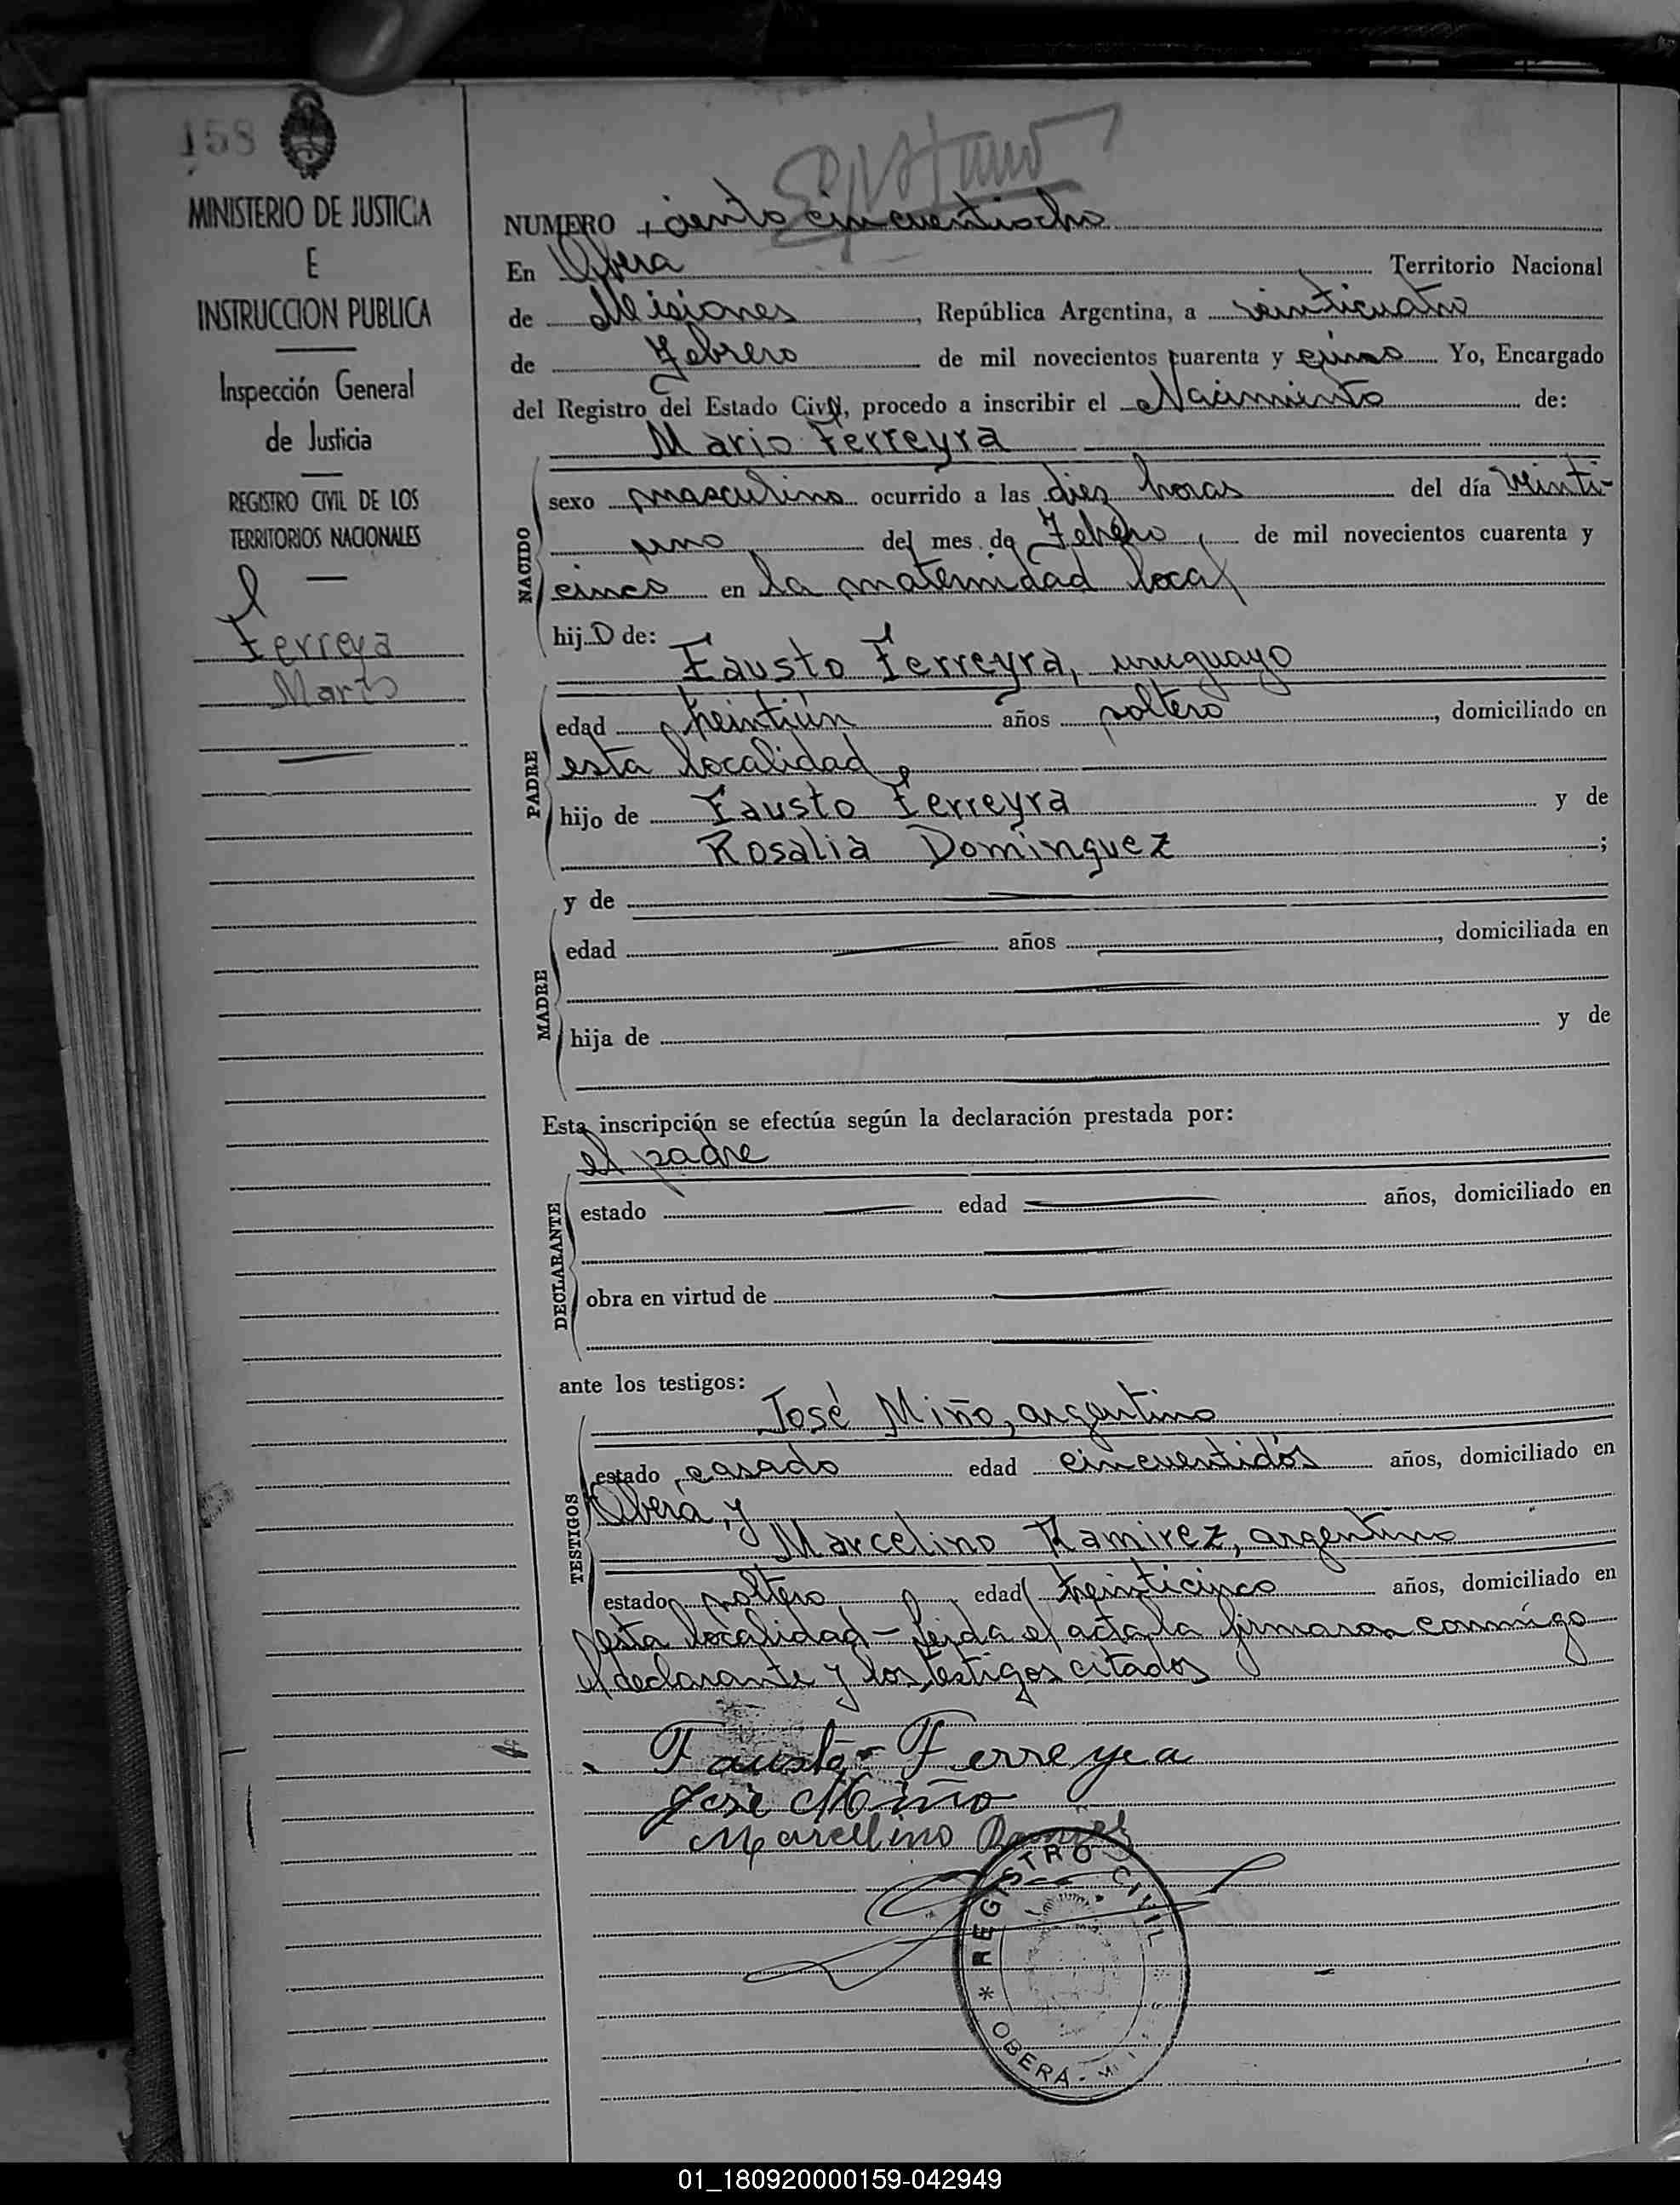 158
MINISTERIO DE JUSTICIA
E
INSTRUCCION PUBLICA
Inspección General
de Justicia
REGISTRO CIVIL DE LOS
TERRITORIOS NACIONALES
Ferreya
Mario
NUMERO ciento cincuentiocho
En Obera Territorio Nacional
de Misiones, República Argentina, a veinticuatro
de Febrero de mil novecientos cuarenta y cinco Yo, Encargado
del Registro del Estado Civil, procedo a inscribir el Nacimiento de:
Mario Ferreyra
NACIDO
sexo masculino ocurrido a las diez horas del día veinti-
uno del mes de Febrero, de mil novecientos cuarenta y
cinco en la maternidad local
hijo de:
Fausto Ferreyra, uruguayo
PADRE
edad años soltero, domiciliado en
esta localidad
hijo de Fausto Ferreyra y de
Rosalia Dominguez ;
y de
MADRE
edad años , domiciliada en
hija de y de
Esta inscripción se efectúa según la declaración prestada por:
el padre
DECLARANTE
estado edad años, domiciliado en
obra en virtud de
ante los testigos:
José Miño, argentino
TESTIGOS
estado casado edad cincuentidós años, domiciliado en
Oberá, y
Marcelino Ramirez, argentino
estado soltero edad años, domiciliado en
esta localidad - leida el acta, la firmaron conmigo
el declarante y los testigos citados
Fausto Ferreyra
José Miño
Marcelino Ramirez
REGISTRO CIVIL
* OBERÁ - M
01_180920000159-042949